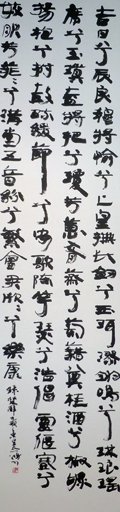 吉日兮辰良穆將愉兮上皇撫長劍兮玉珥璆鏘鳴兮琳琅瑤
席兮玉瑱盍將把兮瓊芳蕙肴蒸兮蘭藉奠桂酒兮椒漿
揚枹兮拊鼓疏緩節兮安歌陳竽瑟兮浩倡靈偃蹇兮
姣服芳菲菲兮滿堂五音紛兮繁會君欣欣兮樂康